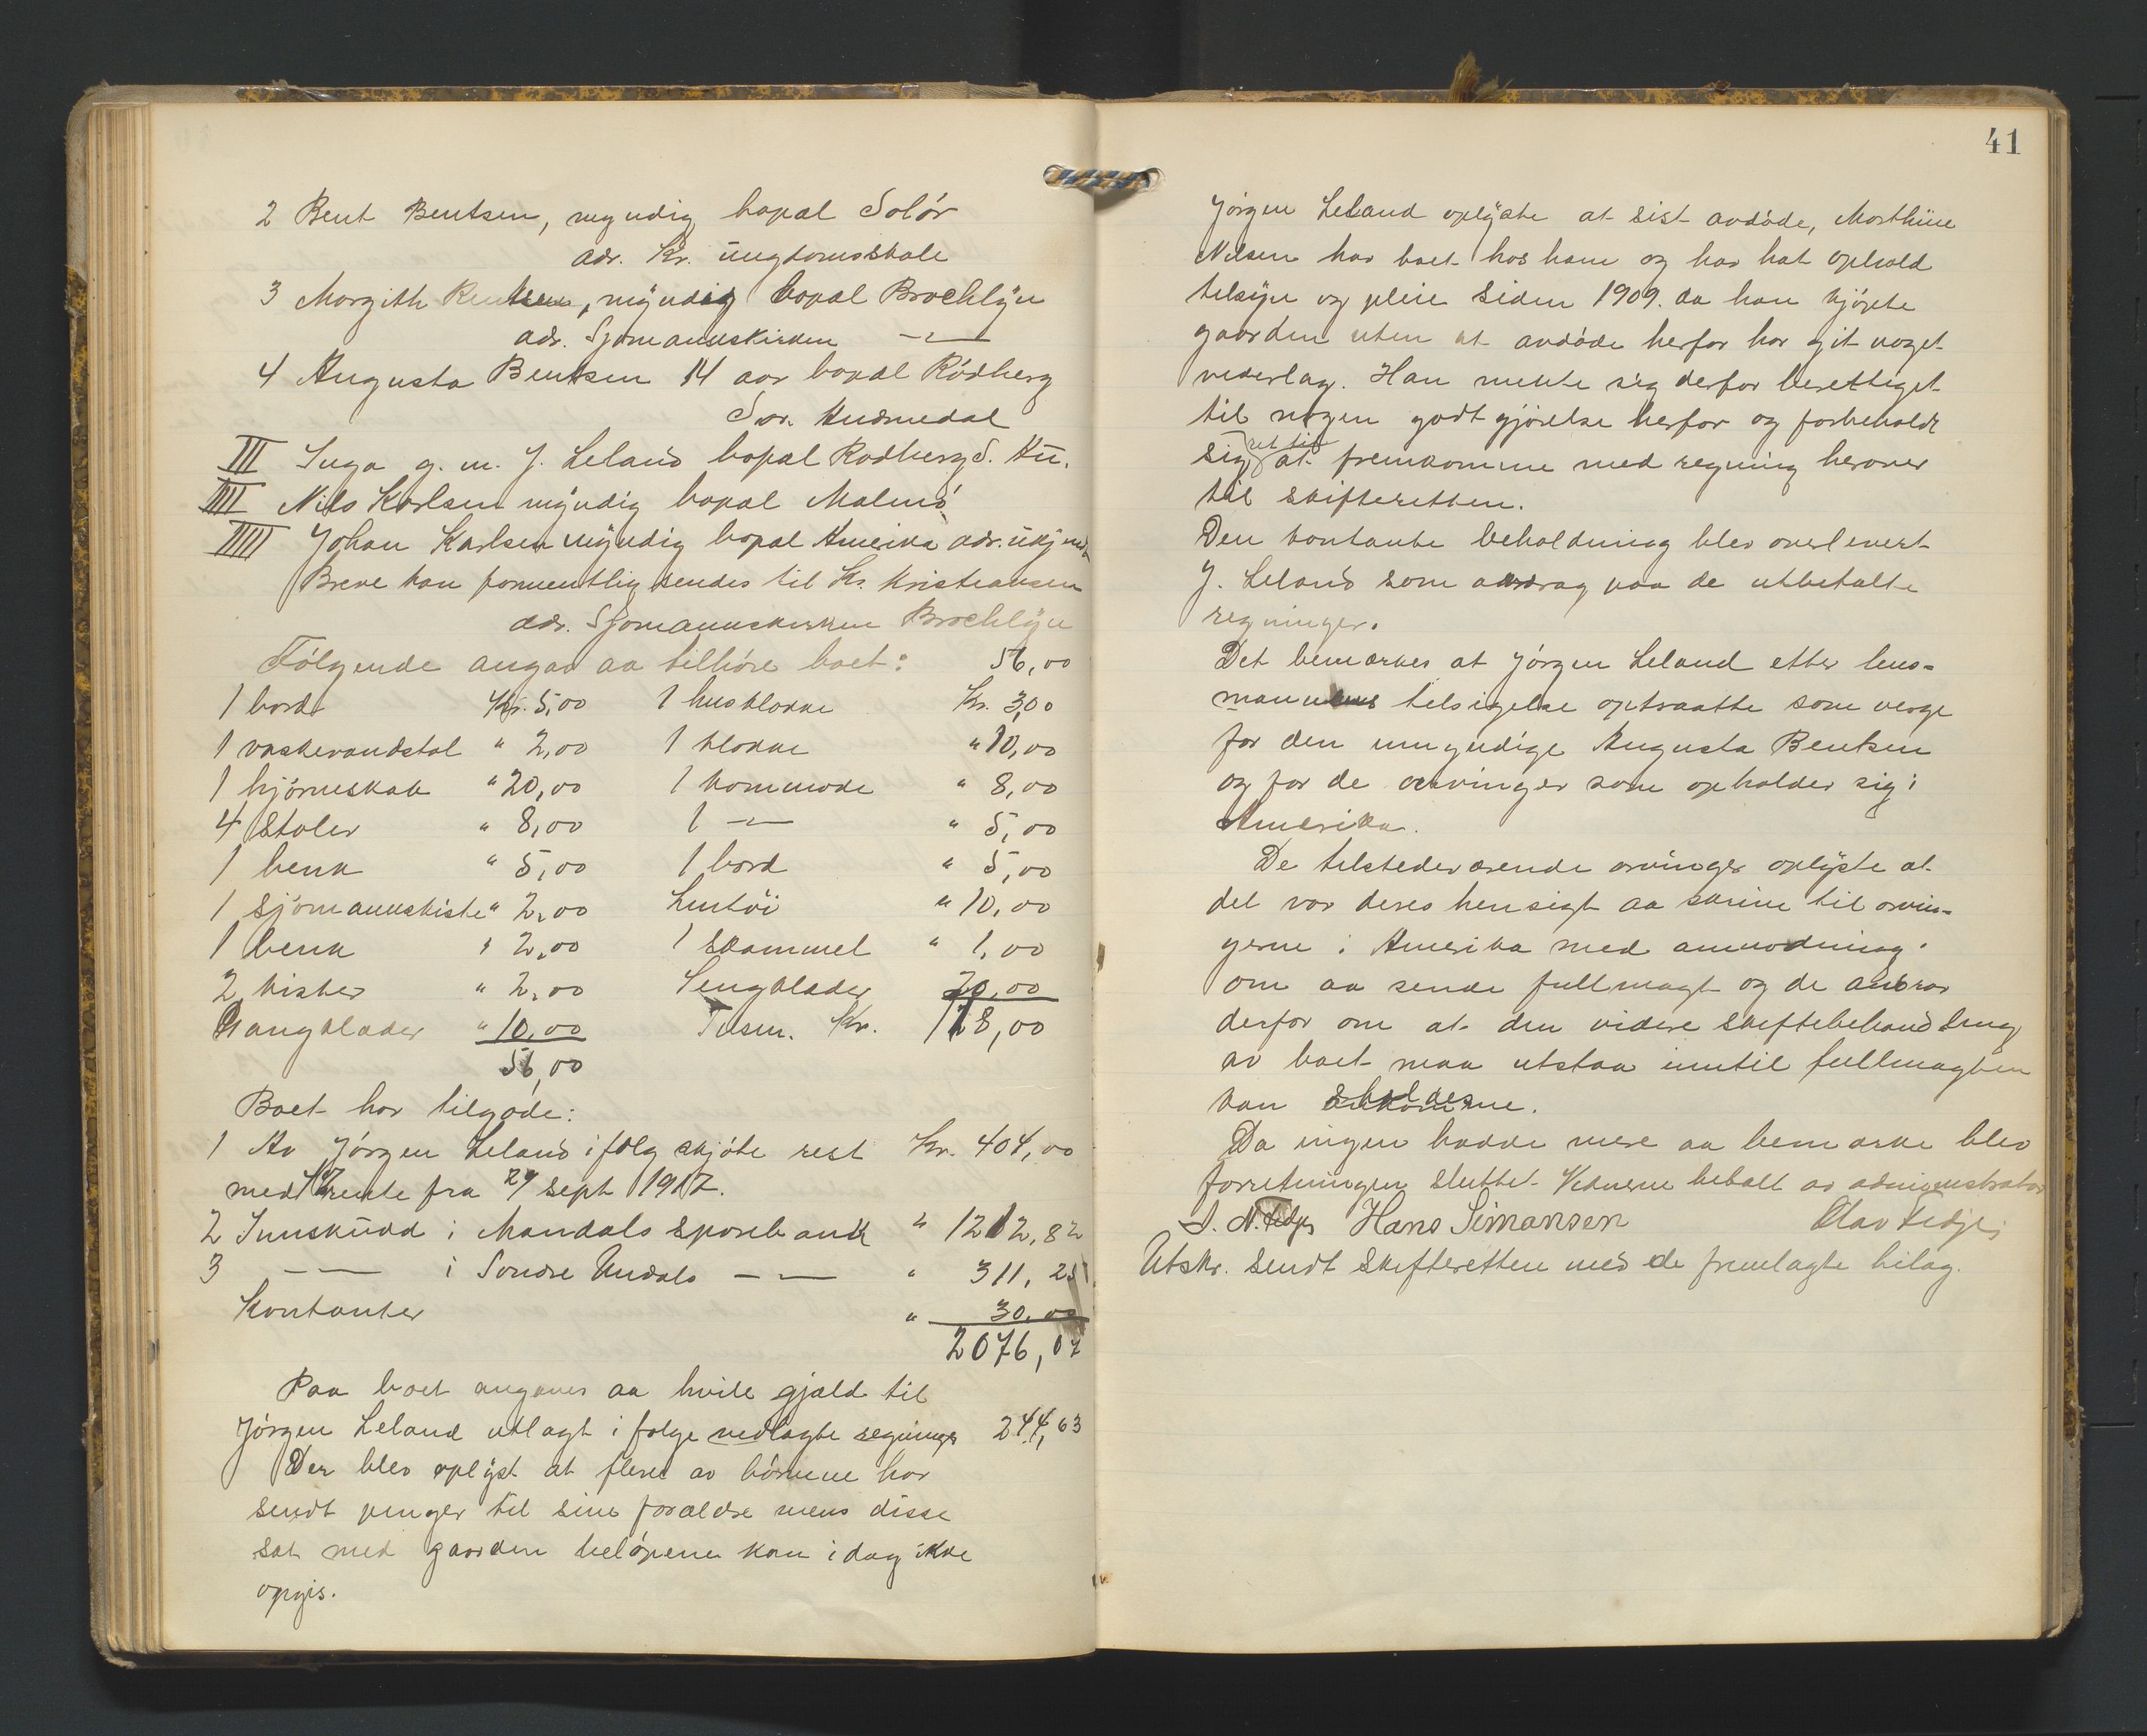 2 Bent Bentsen, myndig bopæl Solör
adr. Kr. ungdomsskole
3 Margith Bentsen, myndig bopæl Brochlyn
adr. Sjømannskirken —"—
4 Augusta Bentsen 14 aar bopæl Rödberg
Sør. Audnedal
III Inga g. m. J. Leland bopæl Rodberg S. Au.
IIII Nils Karlsen myndig bopæl Malmö
IIIII Johan Karlsen myndig bopæl Amerika adr. ukjendt
Breve kan formentlig sendes til Kr. Kristiansen
adr. Sjømannskirken Brochlyn
Følgende angav aa tilhöre boet: 56,00
1 bord Kr. 5,00 1 husklokke Kr. 3,00
1 vaskevandstol " 2,00 1 klokke " 10,00
1 hjörneskab " 20,00 1 kommode " 8,00
4 Stoler " 8,00 1 —"— " 5,00
1 benk " 5,00 1 bord " 5,00
1 Sjömannskiste " 2,00 Lintöi " 10,00
1 benk " 2,00 1 skammel " 1,00
2 kister " 2,00 Sengklæder 20,00
Gangklæder " 10,00 Tilsm. Kr. 118,00
56,00
Boet har tilgode:
1 Av Jörgen Leland ifølg skjöte rest Kr. 404,00
med rente fra 29/ Sept 1917.
2 Innskudd i Mandals Sparebank " 1212,82
3 —"— i Sondre Undals —"— " 311,25
Kontanter " 30,00
2076,07
Paa boet angaves aa hvile gjæld til
Jörgen Leland utlagt i følge vedlagte regninger 244,63
Der blev oplyst at flere av börnene har
sendt penger til sine forældre mens disse
sat med gaarden belöpene kan idag ikke
opgis.
41
Jörgen Leland oplyste at sist avdöde, Marthine
Nilsen har boet hos ham og har hat ophold
tilsyn og pleie siden 1909. da han kjöpte
gaarden uten at avdöde herfor har git noget
vederlag. Han mente sig derfor berettiget
til nogen godtgjörelse herfor og forbeholdt
sig ret til at fremkomme med regning herover
til skifteretten.
Den kontante beholdning blev overlevert
J. Leland som avdrag paa de utbetalte
regninger.
Det bemerkes at Jörgen Leland etter lens-
mannens tilsigelse optraatte som verge
for den umyndige Augusta Bentsen
og for de arvinger som opholder sig i
Amerika.
De tilstedeværende arvinger oplyste at
det var deres hensigt aa skrive til arvin-
gerne i Amerika med anmodning
om aa sende fullmagt og de anbrar
derfor om at den videre skiftebehandling
av boet maa utstaa inntil fullmagten
kan skaffes.
Da ingen hadde mere aa bemærke blev
forretningen sluttet. Vidnerne betalt av administrator
S. N. Fedje Hans Simonsen Olav Fedje
Utskr. sendt Skifteretten med de fremlagte bilag.